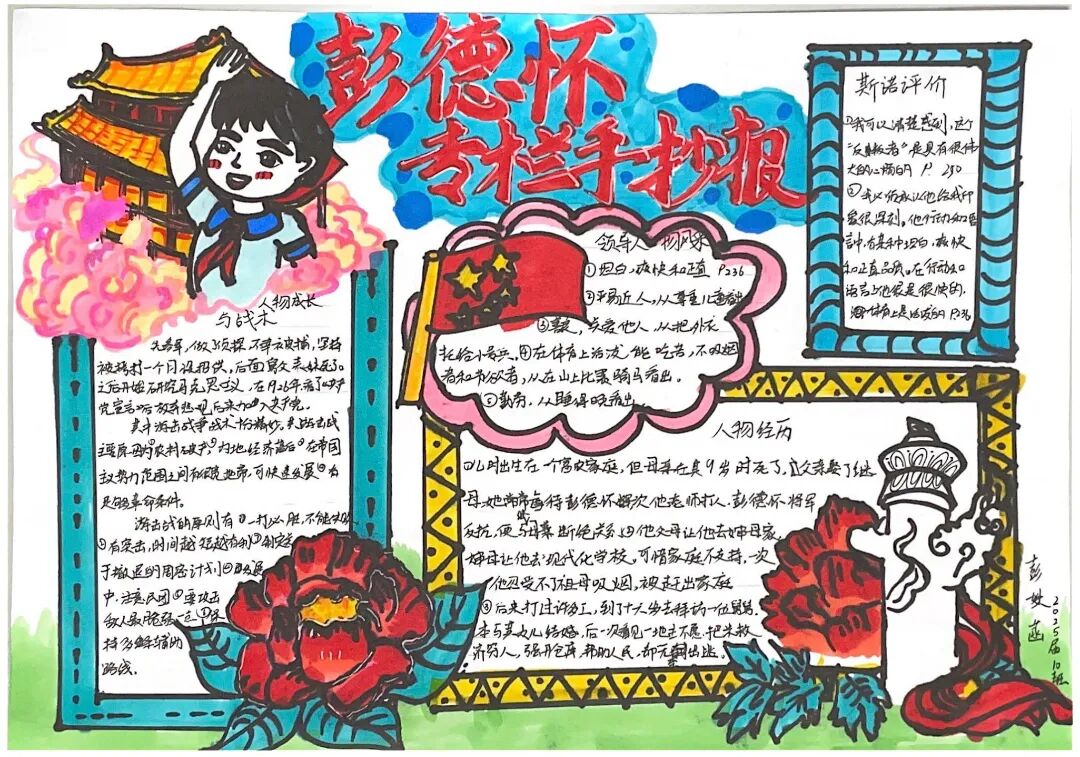 彭德怀
专栏手抄报
人物成长
与战术
先参军,做了侦探,不幸被捕,坚持
被拷打一个月没招供,后面
之后开始研究马克思主义,在1926年看了《共产
党宣言》后放弃悲观,后来加入共产党。
其中游击战争战术十分精妙。其游击战
主要原因为①农村破产②内地经济落后③在帝国
主义势力范围之间有地带,可快速发展④为
是创革命条件。
游击战的原则有①一打必胜,不能失败
②突击,时间越短越有利③制定
于撤退的周密计划④
中,注意民团⑤要攻击
敌人最脆弱一点⑦保
持多辅助
路线。
领导人物风采
①坦白,爽快和正直 P236
②平易近人,从尊重儿童看出
③关爱他人,从把外衣
托给小号兵。④在体育上活泼,能吃苦,不吸烟
者和节欲者,从在山上比赛骑马看出。
⑤勤劳,从睡得晚看出
斯诺评价
①我可以清楚感到,这个
“反叛者”是具有很伟
大的心烦的 P 250
②我必须承认他给我印
象很深刻。他行动和言
语中,有某种坦白,爽快
和正直品质。在行动和
语言上他很是很快的,
人物经历
①儿时出生在一个富农家庭,但母亲在其9岁时死了,父亲娶了继
母,她常常虐待彭德怀,一次他老师打人,彭德怀将军
反抗,便与母亲断绝关系,②他父母让他去婶母家,
婶母让他去现代化学校。可惜家庭不支持,一次
他忍受不了祖母吸烟,被赶出家庭
③后来打过许多工,到了十六岁去拜访一位舅舅,
本与其女儿结婚,后一次看见一地主不愿把米救
济穷人,强开仓库,帮助人民,却无奈出逃。
2025届10班